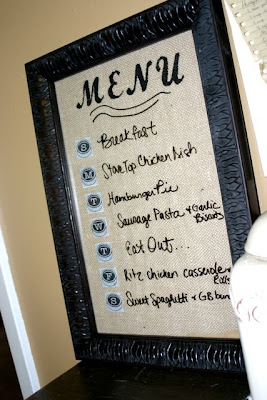 MENU
S Breakfast
M Stove Top Chicken Dish
T Hamburger Pie
W Sausage Pasta & Garlic Biscuits
T East Out...
F Ritz chicken casserole & Rolls
S Sweet Spaghetti & GB bun